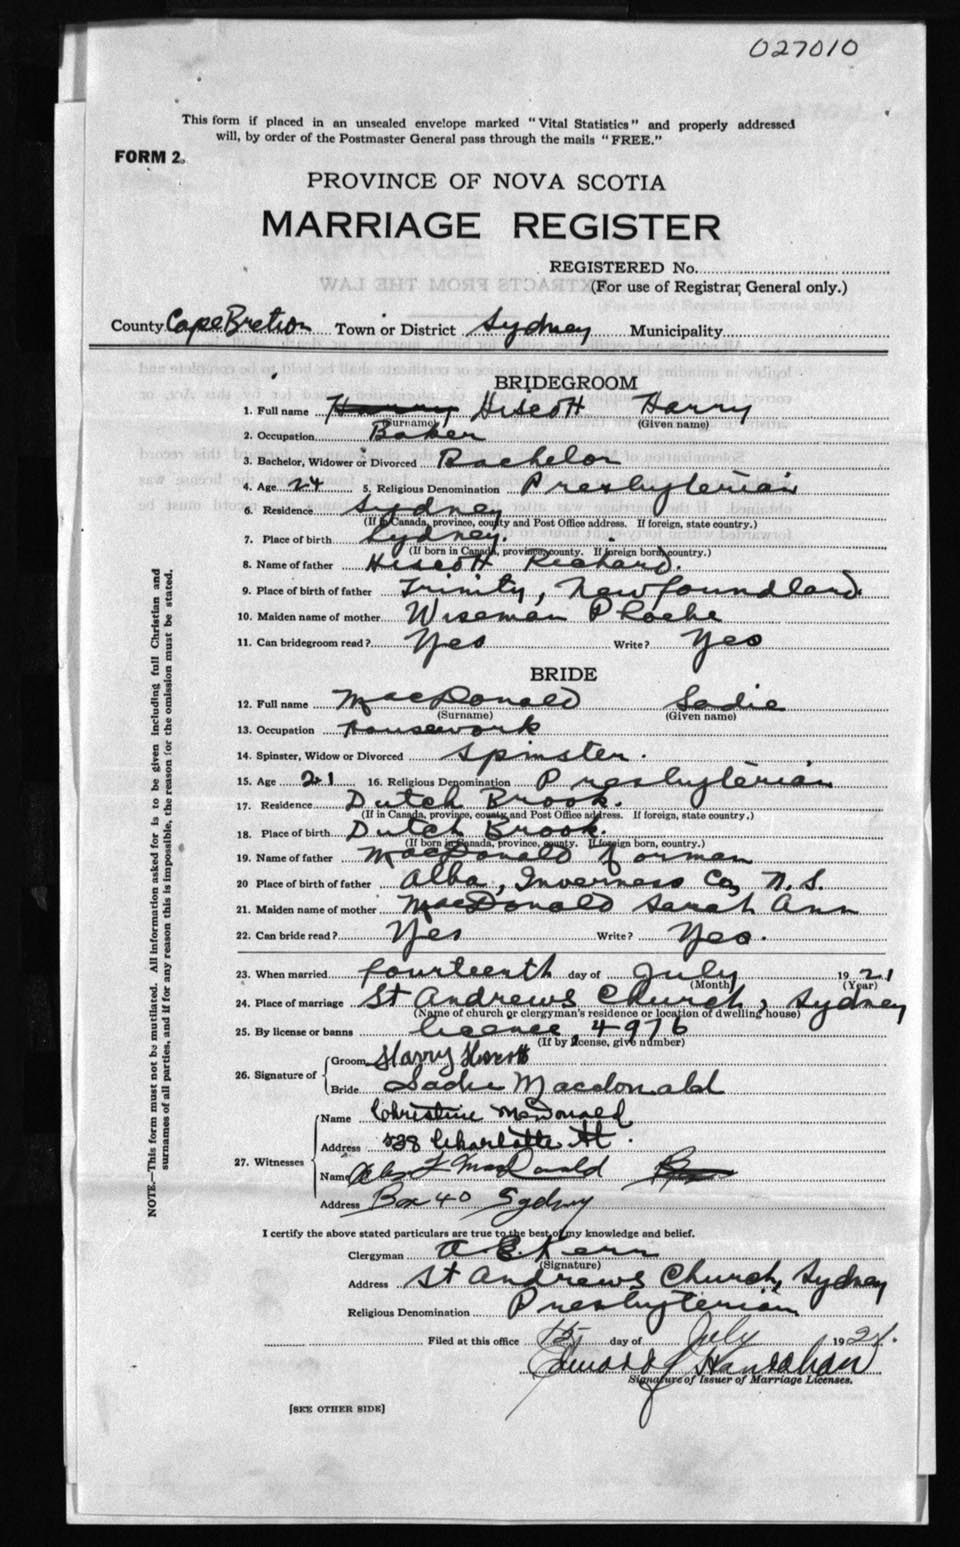 027010
This form if placed in an unsealed envelope marked "Vital Statistics" and properly addressed
will, by order of the Postmaster General pass through the mails "FREE."
FORM 2.
PROVINCE OF NOVA SCOTIA
MARRIAGE REGISTER
REGISTERED No.
(For use of Registrar General only.)
County Cape Breton Town or District Sydney Municipality
BRIDEGROOM
1. Full name Harry Hiscott Harry
(Surname) (Given name)
2. Occupation Baker
3. Bachelor, Widower or Divorced Bachelor
4. Age 24 5. Religious Denomination Presbyterian
6. Residence Sydney
(If in Canada, province, county and Post Office address. If foreign, state country.)
7. Place of birth Sydney.
(If born in Canada, province, county. If foreign born, country.)
8. Name of father Hiscott Richard.
9. Place of birth of father Trinity, Newfoundland.
10. Maiden name of mother Wiseman Phoebe
11. Can bridegroom read? Yes Write? Yes
BRIDE
12. Full name MacDonald Sadie
(Surname) (Given name)
13. Occupation Housework
14. Spinster, Widow or Divorced Spinster.
15. Age 21 16. Religious Denomination Presbyterian
17. Residence Dutch Brook.
(If in Canada, province, county and Post Office address. If foreign, state country.)
18. Place of birth Dutch Brook.
(If born in Canada, province, county. If foreign born, country.)
19. Name of father MacDonald Norman
20 Place of birth of father Alba, Inverness Co, N.S.
21. Maiden name of mother MacDonald Sarah Ann
22. Can bride read? Yes Write? Yes.
23. When married fourteenth day of July 1921
(Month) (Year)
24. Place of marriage St Andrews Church, Sydney
(Name of church or clergyman's residence or location of dwelling house)
25. By license or banns licence, 4976
(If by license, give number)
26. Signature of
Groom Harry Hiscott
Bride Sadie Macdonald
27. Witnesses
Name Christine McDonald
Address 528 Charlotte St.
Name Alex F MacDonald
Address Box 40 Sydney
I certify the above stated particulars are true to the best of my knowledge and belief.
Clergyman A E Kerr
(Signature)
Address St Andrews Church, Sydney
Religious Denomination Presbyterian
Filed at this office 15 day of July 1921.
Edward J Hanrahan
Signature of Issuer of Marriage Licenses.
[SEE OTHER SIDE]
NOTE.—This form must not be mutilated. All information asked for is to be given including full Christian and
surnames of all parties, and if for any reason this is impossible, the reason for the omission must be stated.